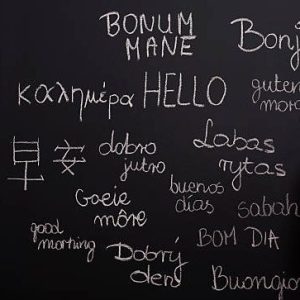 BONUM
MANE
Bonj
καλημέρα
HELLO
guten
mor
早安
dobro
jutro
Labas
rytas
Goeie
môre
buenos
días
sabah
good
morning
Dobrý
den
BOM DIA
Buongio